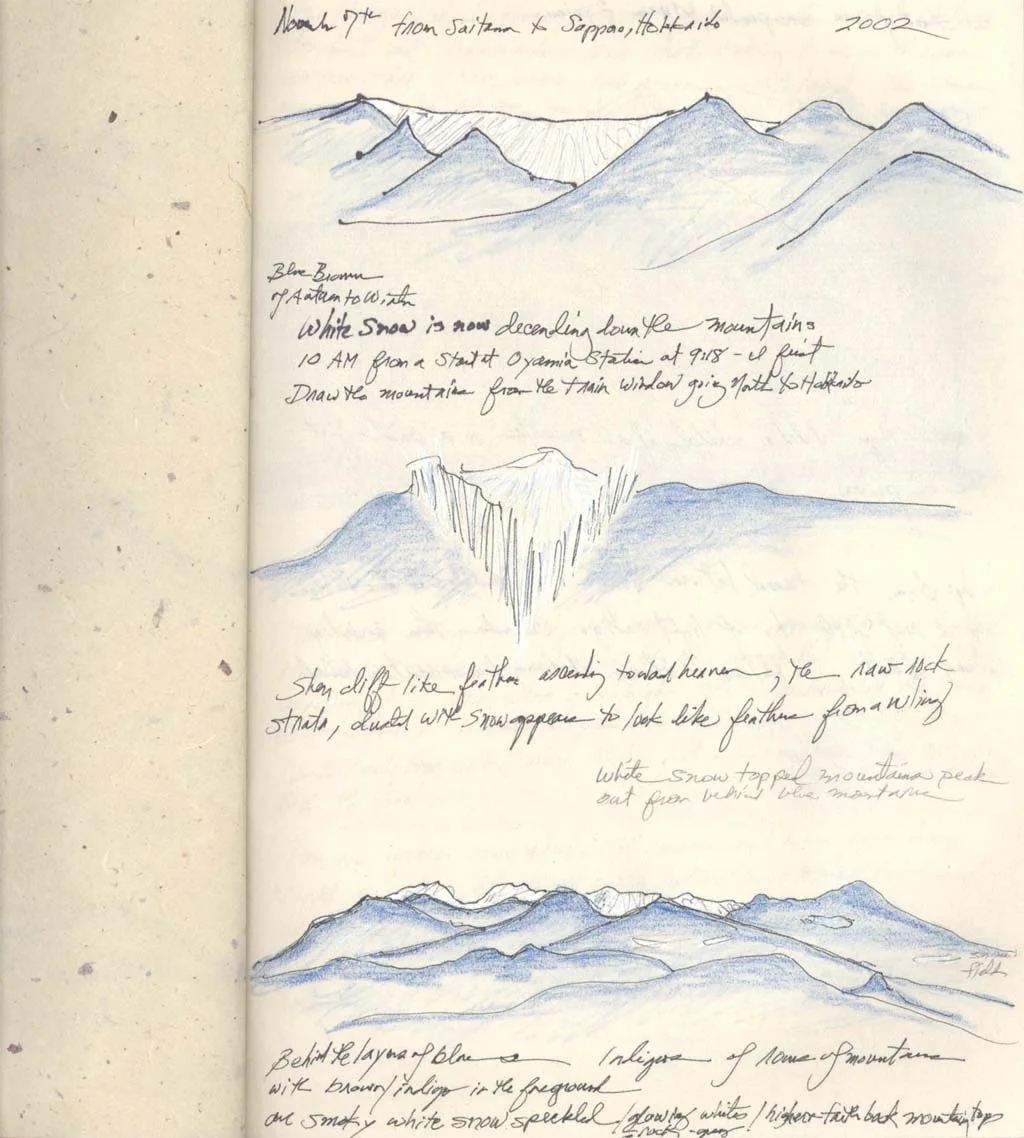 from Saitama to Sapporo, Hokkaido 2002
Blue Brown
of Autum to Winter
White Snow is now decending down the mountains
10 AM from a Start at Oyamia Station at 9:18 - I first
Draw the mountains from the train window going North to Hokkaido
cliff like feathers ascending toward heaven, the raw rock
strata, dusted with snow appears to look like feathers from a wing
White snow topped mountains peak
out from behind blue mountains
snow
fields
Behind the layers of blue Indigos of rows of mountains
with brown/indigo in the foreground
are smoky white snow speckled /glowing whites / higher faith back mountain tops
rock - gray